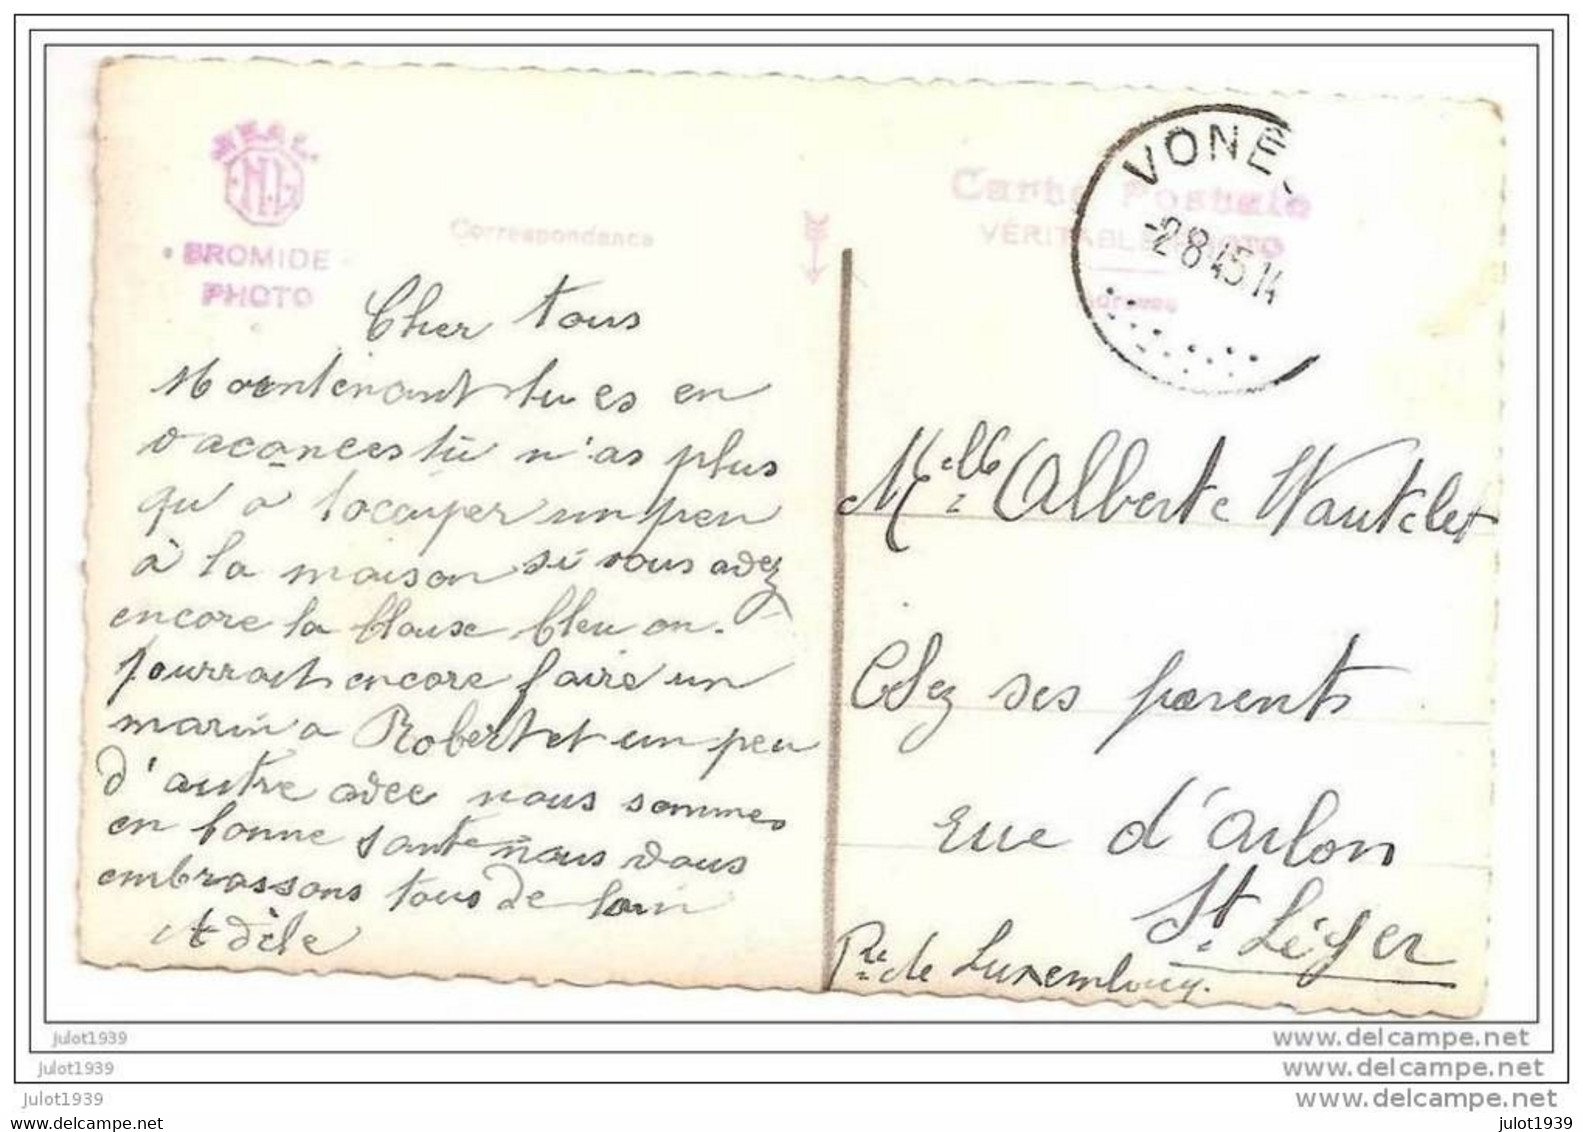 WEAL
N.L
BROMIDE
PHOTO
Correspondance
Cher tous
Maentenant tu es en
vacances tu n'as plus
qu'a tocauper un peu
à la maison si vous avez
encore la blouse bleu on
pourrait encore faire un
marin a Robert et un peu
d'autre avec nous sommes
en bonne sante nous vous
embrassons tous de loin
Adèle
Carte Postale
VÉRITABLE PHOTO
Adresse
VONE
-2 8 45 14
Melle Alberte Wautelet
Chez ses parents
rue d'Arlon
St. Léger
Pce de Luxembourg.
julot1939
www.delcampe.net
julot1939
www.delcampe.net
julot1939
www.delcampe.net
julot1939
julot1939